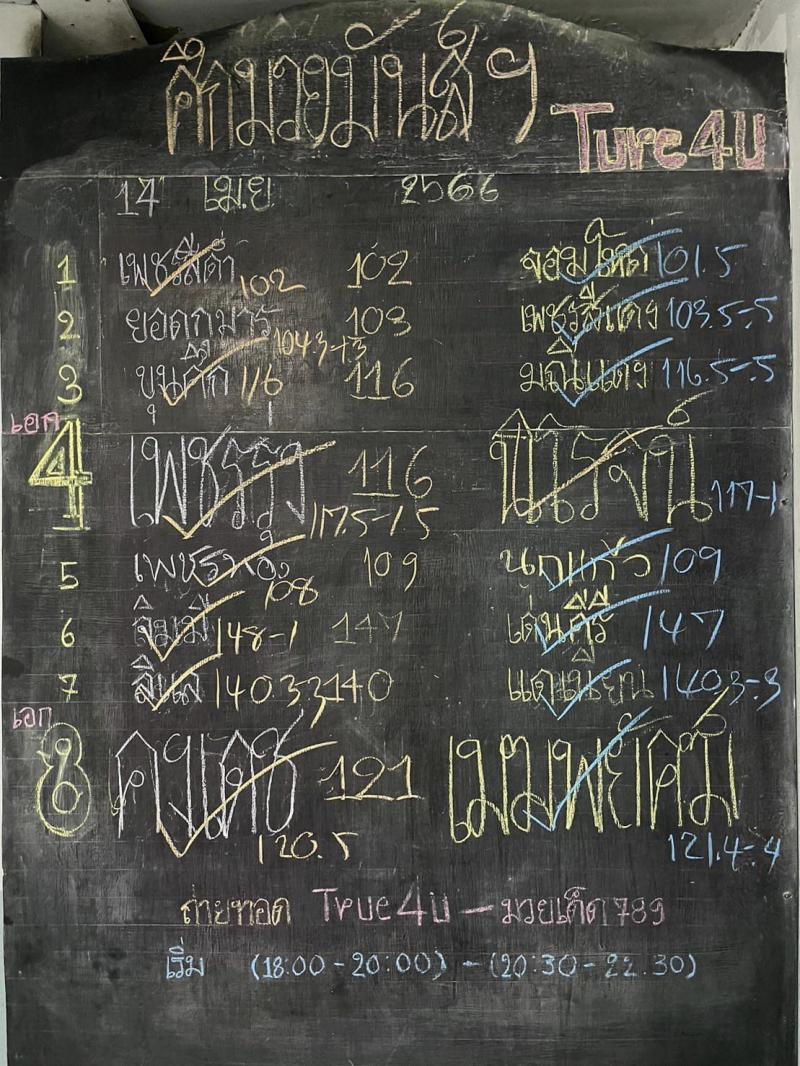 ศึกมวยมันส์ฯ
Ture4U
14 เม.ย 2566
1 เพชรสีดำ 102 102 จอมโหด 101.5
2 ยอดกุมาร 104.3-+3 108 เพชรสีแดง 103.5-.5
3 ขุนศึก 116 116 มณีแดง 116.5-.5
เอก
4 เพชรรุ่ง 117.5-1.5 116 นิโรจน์ 117-1
5 เพชรทอง 108 109 นกแก้ว 109
6 148-1 147 เด่นคีรี 147
7 สิงโต 140.3-.3 140 แดเนียน 140.3-.3
เอก
8 คงเดช 120.5 121 เมฆพยัคฆ์ 121.4-.4
ถ่ายทอด True4U - มวยเด็ด789
เริ่ม (18:00-20:00) - (20:30-22.30)